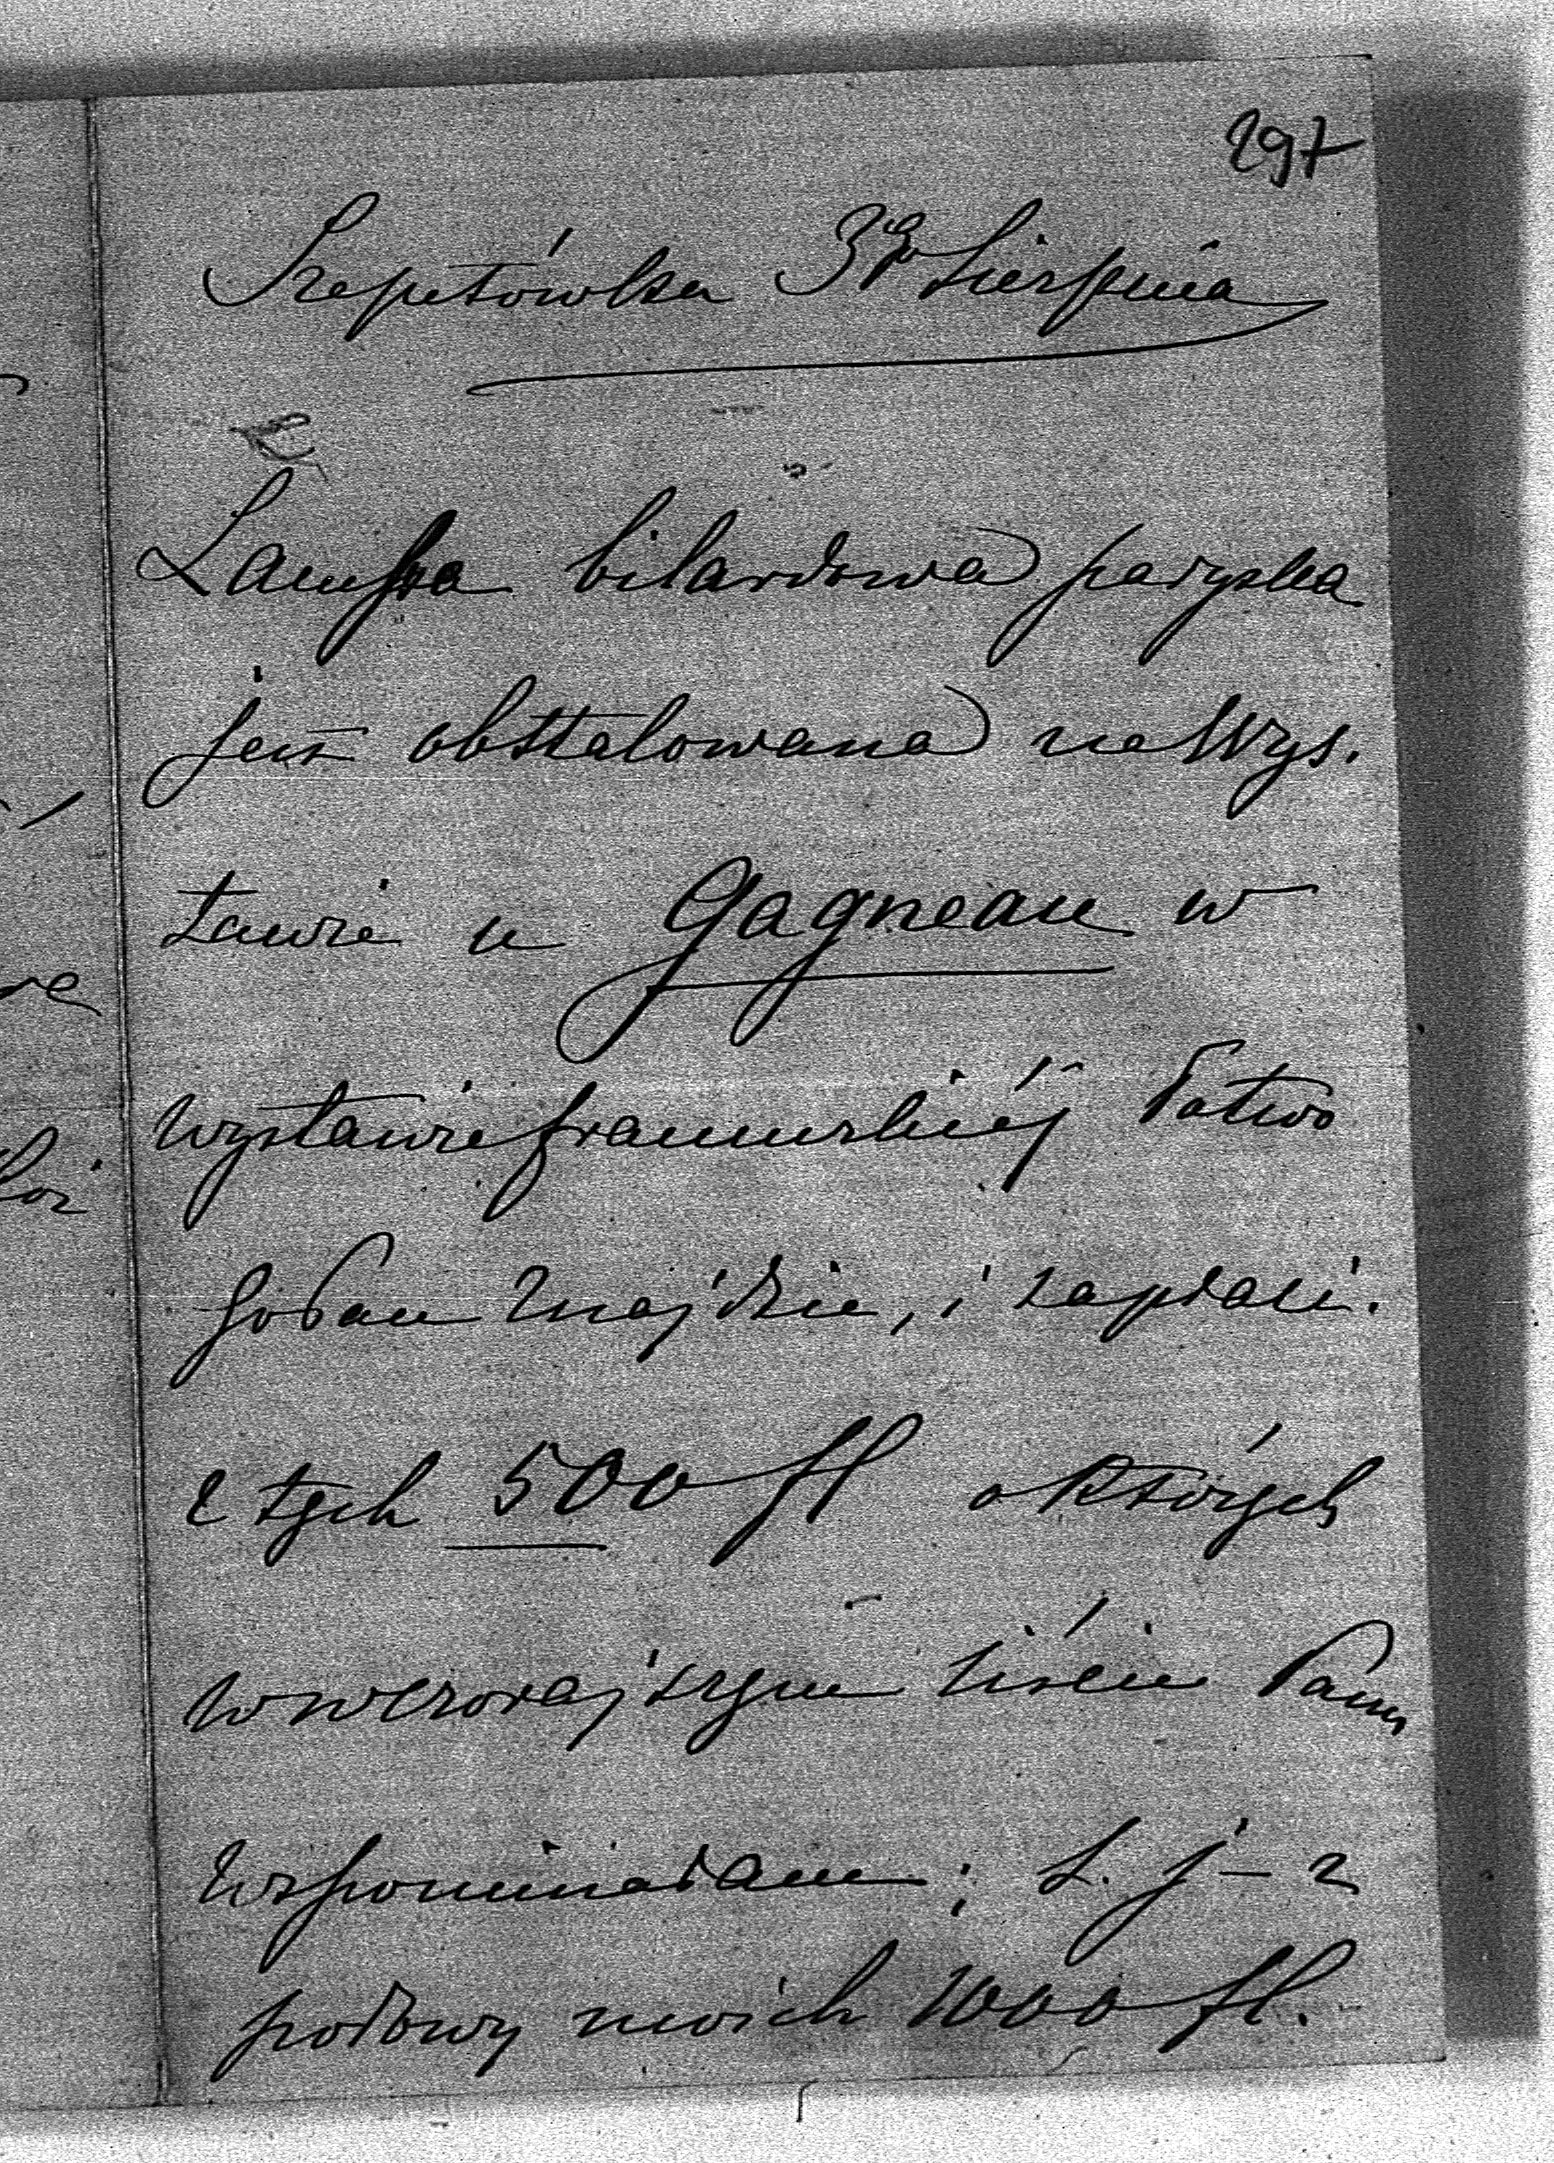 297
Szepetówka 3go Sierpnia
Lampa bilardowa paryska
jest obstalowana na Wys.
tawie u Gagneau w
wystawie francuzkiéj Łatwo
go Pan znajdzie, i zapłaci.
z tych 500 fl o których
w wczorajszym liście Panu
wspominałam; t. j - z
połowy moich 1000 fl.